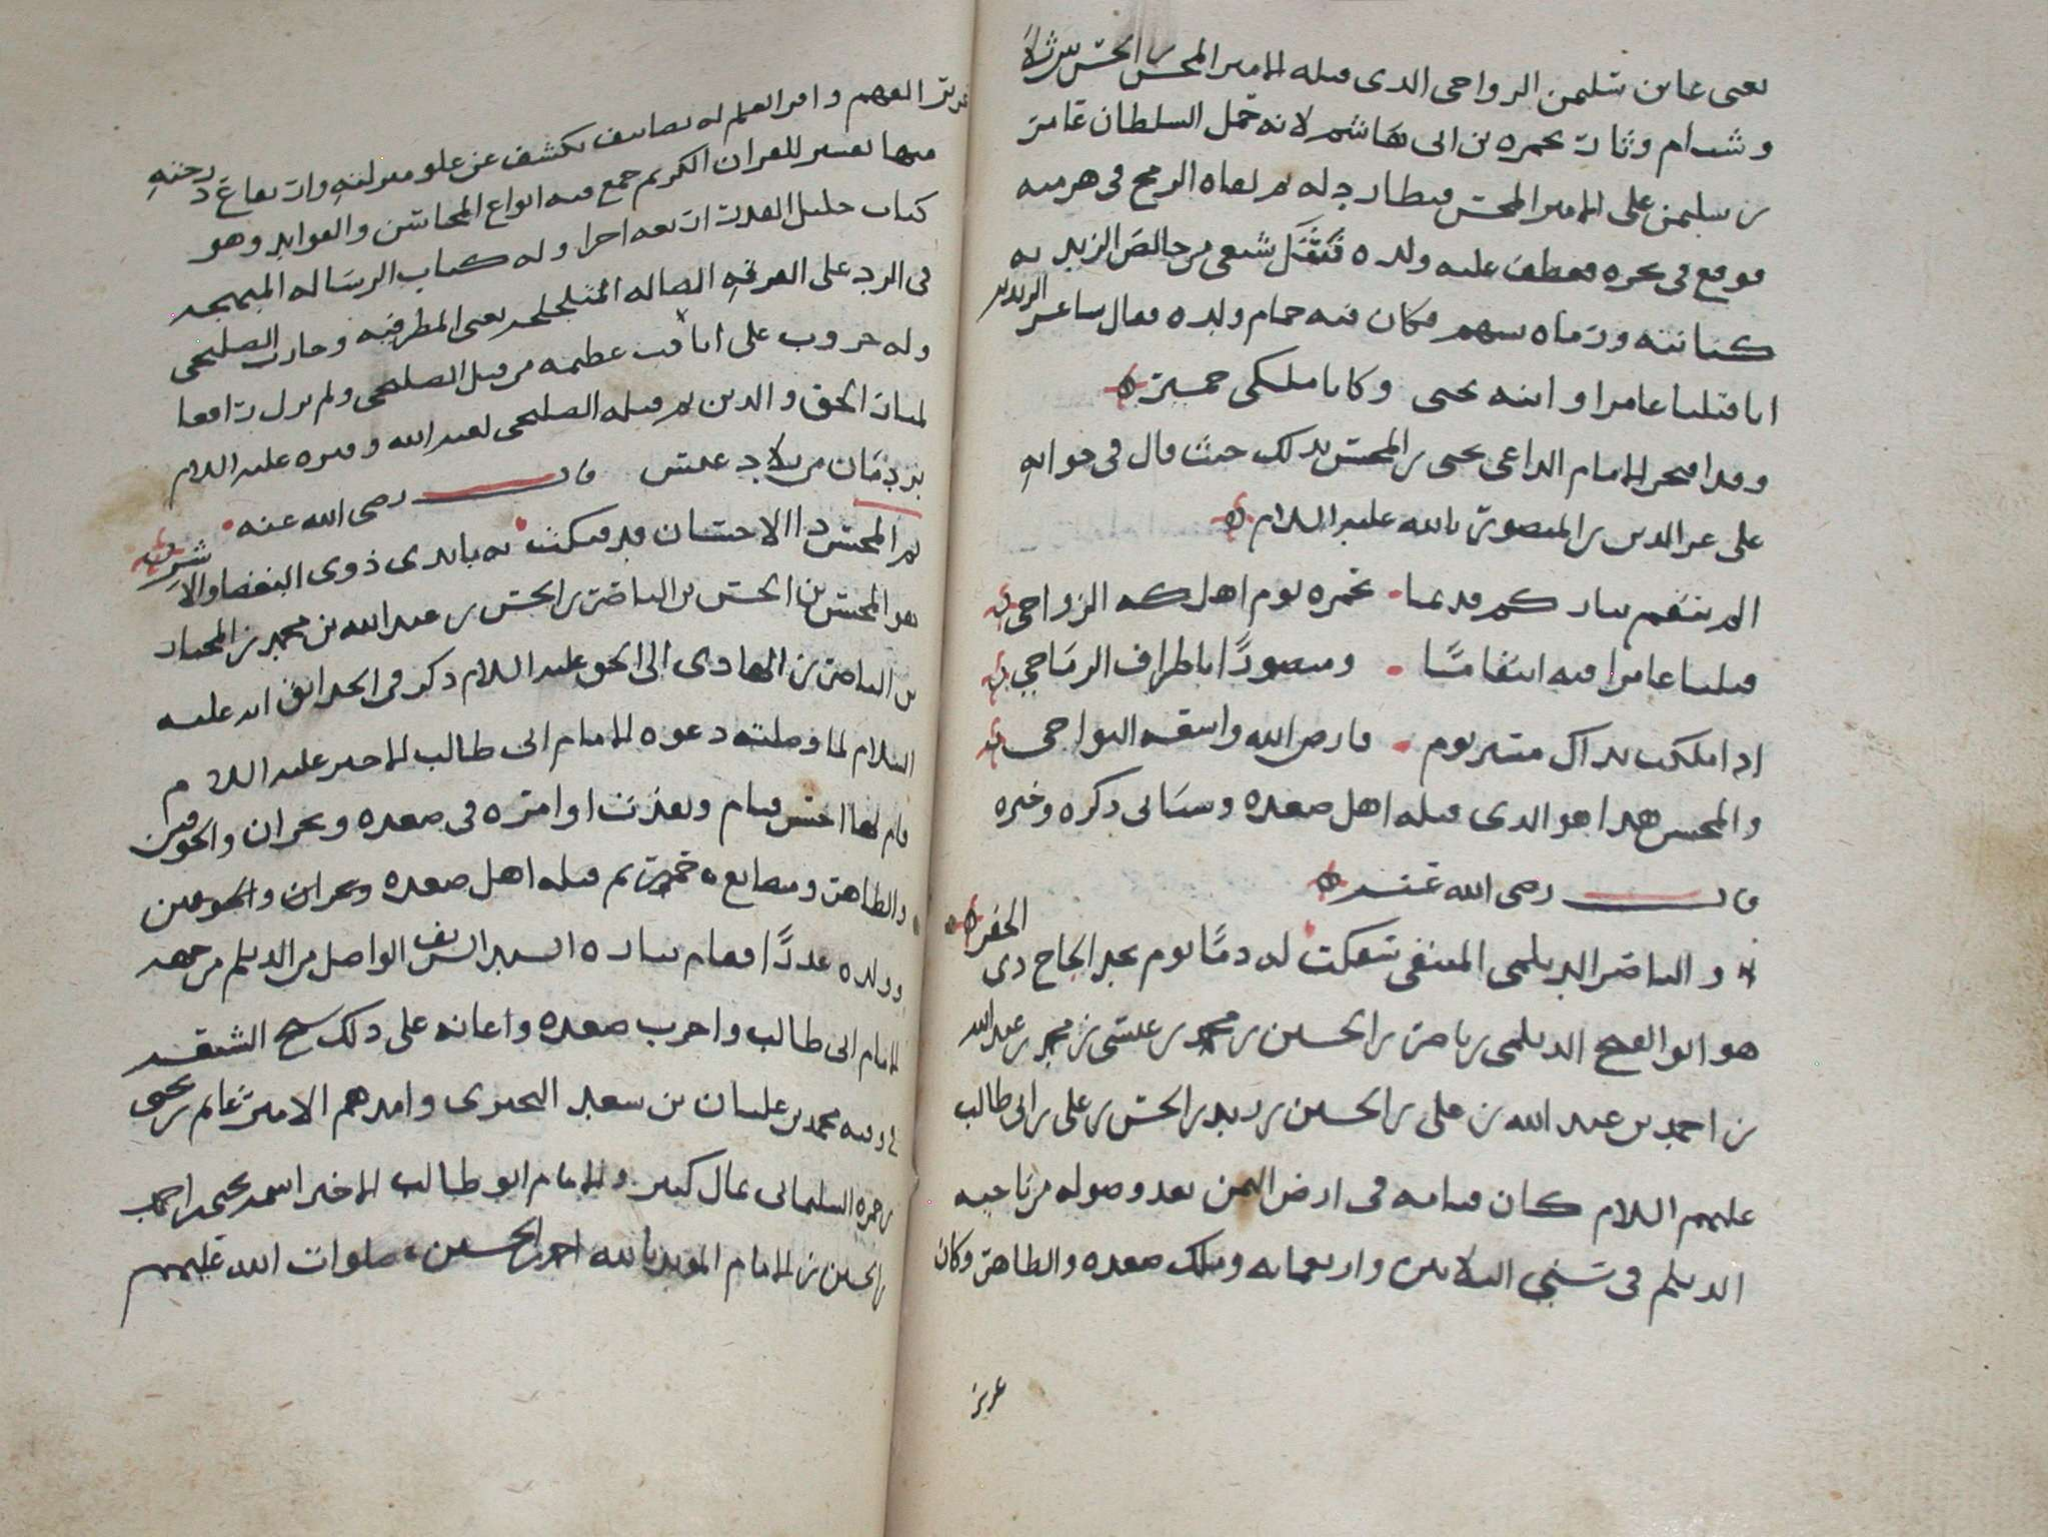 يعنى عامر بن سليمن الرواحى الذى قتله الامير المحسن بن الحسن
وشبام وثار بحمزه بن ابى هاشم لانه حمل السلطان عامر
بن سليمن على الامير المحسن فطارد له ثم لقاه الرمح فى هزيمته
فوقع فى نحره فعطف عليه ولده فنثل شعى من خالص الزبد به
كنانته ورماه بسهم فكان فيه حمام ولده فقال شاعر الزيديه
انا قتلنا عامرا وابنه يحيى وكانا ملكى حمير
وقد افتخر الامام الداعى يحيى بن المحسن بذلك حيث قال فى جوابه
على عز الدين بن المنصور بالله عليه السلام
الم ننقم بثاركم قديما بحمزه يوم اهلكه الزواحى
قتلنا عامرا فيه انتقاما ومنصورًا باطراف الرماح
اذا ملكت بذاك مسير يوم فارض الله واسعه النواحى
والمحسن هذا هو الذى قتله اهل صعده وسياتى ذكره وخبره
قال رضى الله عنه
والناصر الديلمى المنتقى سفكت له دمًا يوم نجد الجاح ذى الحفر
هو ابو الفتح الديلمى بن ناصر بن الحسين بن محمد بن عيسى بن محمد بن عبد الله
بن احمد بن عبد الله بن على بن الحسين بن زيد بن الحسن بن على بن ابى طالب
عليهم السلام كان قيامه فى ارض اليمن بعد وصوله من ناحيه
الديلم فى سنى الثلاثين واربعمايه وملك صعده والطاهر وكان
عزيز
غزير الفهم وافر العلم له تصانيف تكشف عن علو منزلته وارتفاع درجته
منها تفسير للقران الكريم جمع فيه انواع المحاسن والفوايد وهو
كتاب جليل القدر اربعه اجزا وله كتاب الرساله المبهجه
فى الرد على الفرقه الضاله المتلجلجه يعنى المطرفيه وحارب الصليحى
وله حروب على عظيمه من قبل الصليحى ولم يزل رافعا
لمنار الحق والدين ثم قتله الصليحى لعنه الله وقبره عليه السلام
بردمان من بلاد عنس قال رضى الله عنه
ثم المحسن ذا الاحسان قد فتكت به بايدى ذوى البغضا والاشر
هو المحسن بن الحسن بن الناصر بن الحسن بن عبد الله بن محمد بن المختار
بن الناصر بن الهادى الى الحق عليه السلام ذكر فى الحدائق انه عليه
السلام لما وصلته دعوه الامام ابى طالب الاخير عليه السلام
قام لها احسن قيام ونفذت اوامره فى صعده ونجران والجوفين
والطاهر ومصانع حمير ثم قتله اهل صعده ونجران والجوفين
وولده غدرًا فقام بثاره السيد الشريف الواصل من الديلم من جهه
الامام ابى طالب واخرب صعده واعانه على ذلك شيخ الشيعه
فى وقته محمد بن عليان بن سعد البحيرى وامدهم الامير غانم بن يحيى
بن حمزه السليمانى بمال كثير والامام ابو طالب الاخير اسمه يحيى بن احمد
بن الحسين بن الامام المويد بالله احمد بن الحسين صلوات الله عليهم